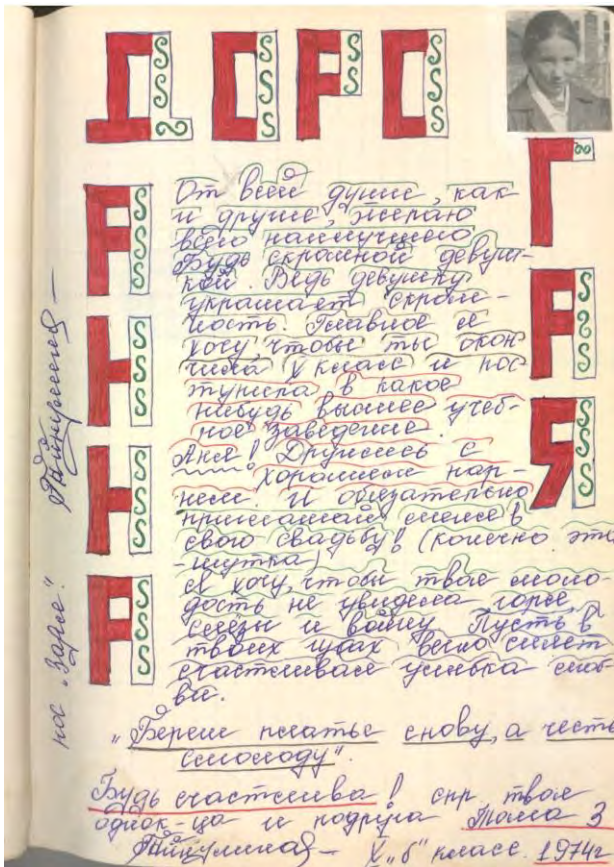 ДОРО
ГАЯ
АННА
От всей души, как
и друше, желаю
всего наилучшего
Будь скромной девуш-
кой. Ведь девушку
украшает скром-
ность. Главное я
хочу, чтобы ты окон
чила X класс и пос
тупила в какое
нибудь высшее учеб-
ное заведение.
Аня! Дружись с
хорошим пар-
нем. И обязательно
приглашай меня в
свою свадьбу! (конечно это
шутка)
Я хочу, чтобы твоя моло
дость не увидела горе,
слезы и войну Пусть в
твоих губах вечно сияет
счастливая улыбка люб
ви.
"Береги платье снову, а честь
смолоду".
Будь счастлива! спр твоя
однок-ца и подруга Тома З
X "б" класс. 1974г
пос "Заря".